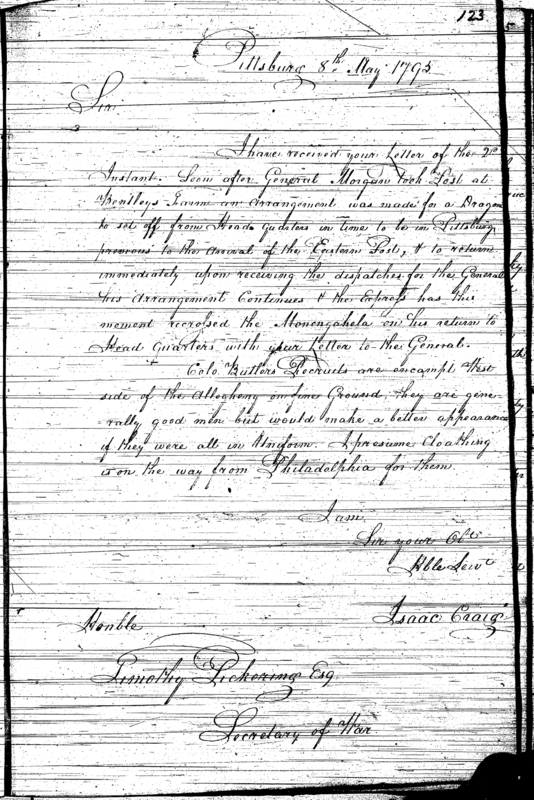 123
Pittsburg 8th May 1795
Sir
I have received your Letter of the 2d
Instant. Soon after General Morgan took Post at
Bentleys Farm an Arrangement was made for a Dragoon
to set off from Head Quarters in time to be in Pittsburg
previous to the Arrival of the Eastern Post, & to return
immediately upon receiving the dispatches for the General
this Arrangement Continues & the Express has this
moment recrossed the Monongahela on his return to
Head Quarters with your Letter to the General.
Colo. Butlers Recruits are encampt West
side of the Allegheny on fine Ground, they are gene-
=rally good men but would make a better appearance
if they were all in Uniform. I presume Cloathing
is on the way from Philadelphia for them.
I am
Sir your Obt
Hble Servt
Isaac Craig
Honble
Timothy Pickering Esq
Secretary of War